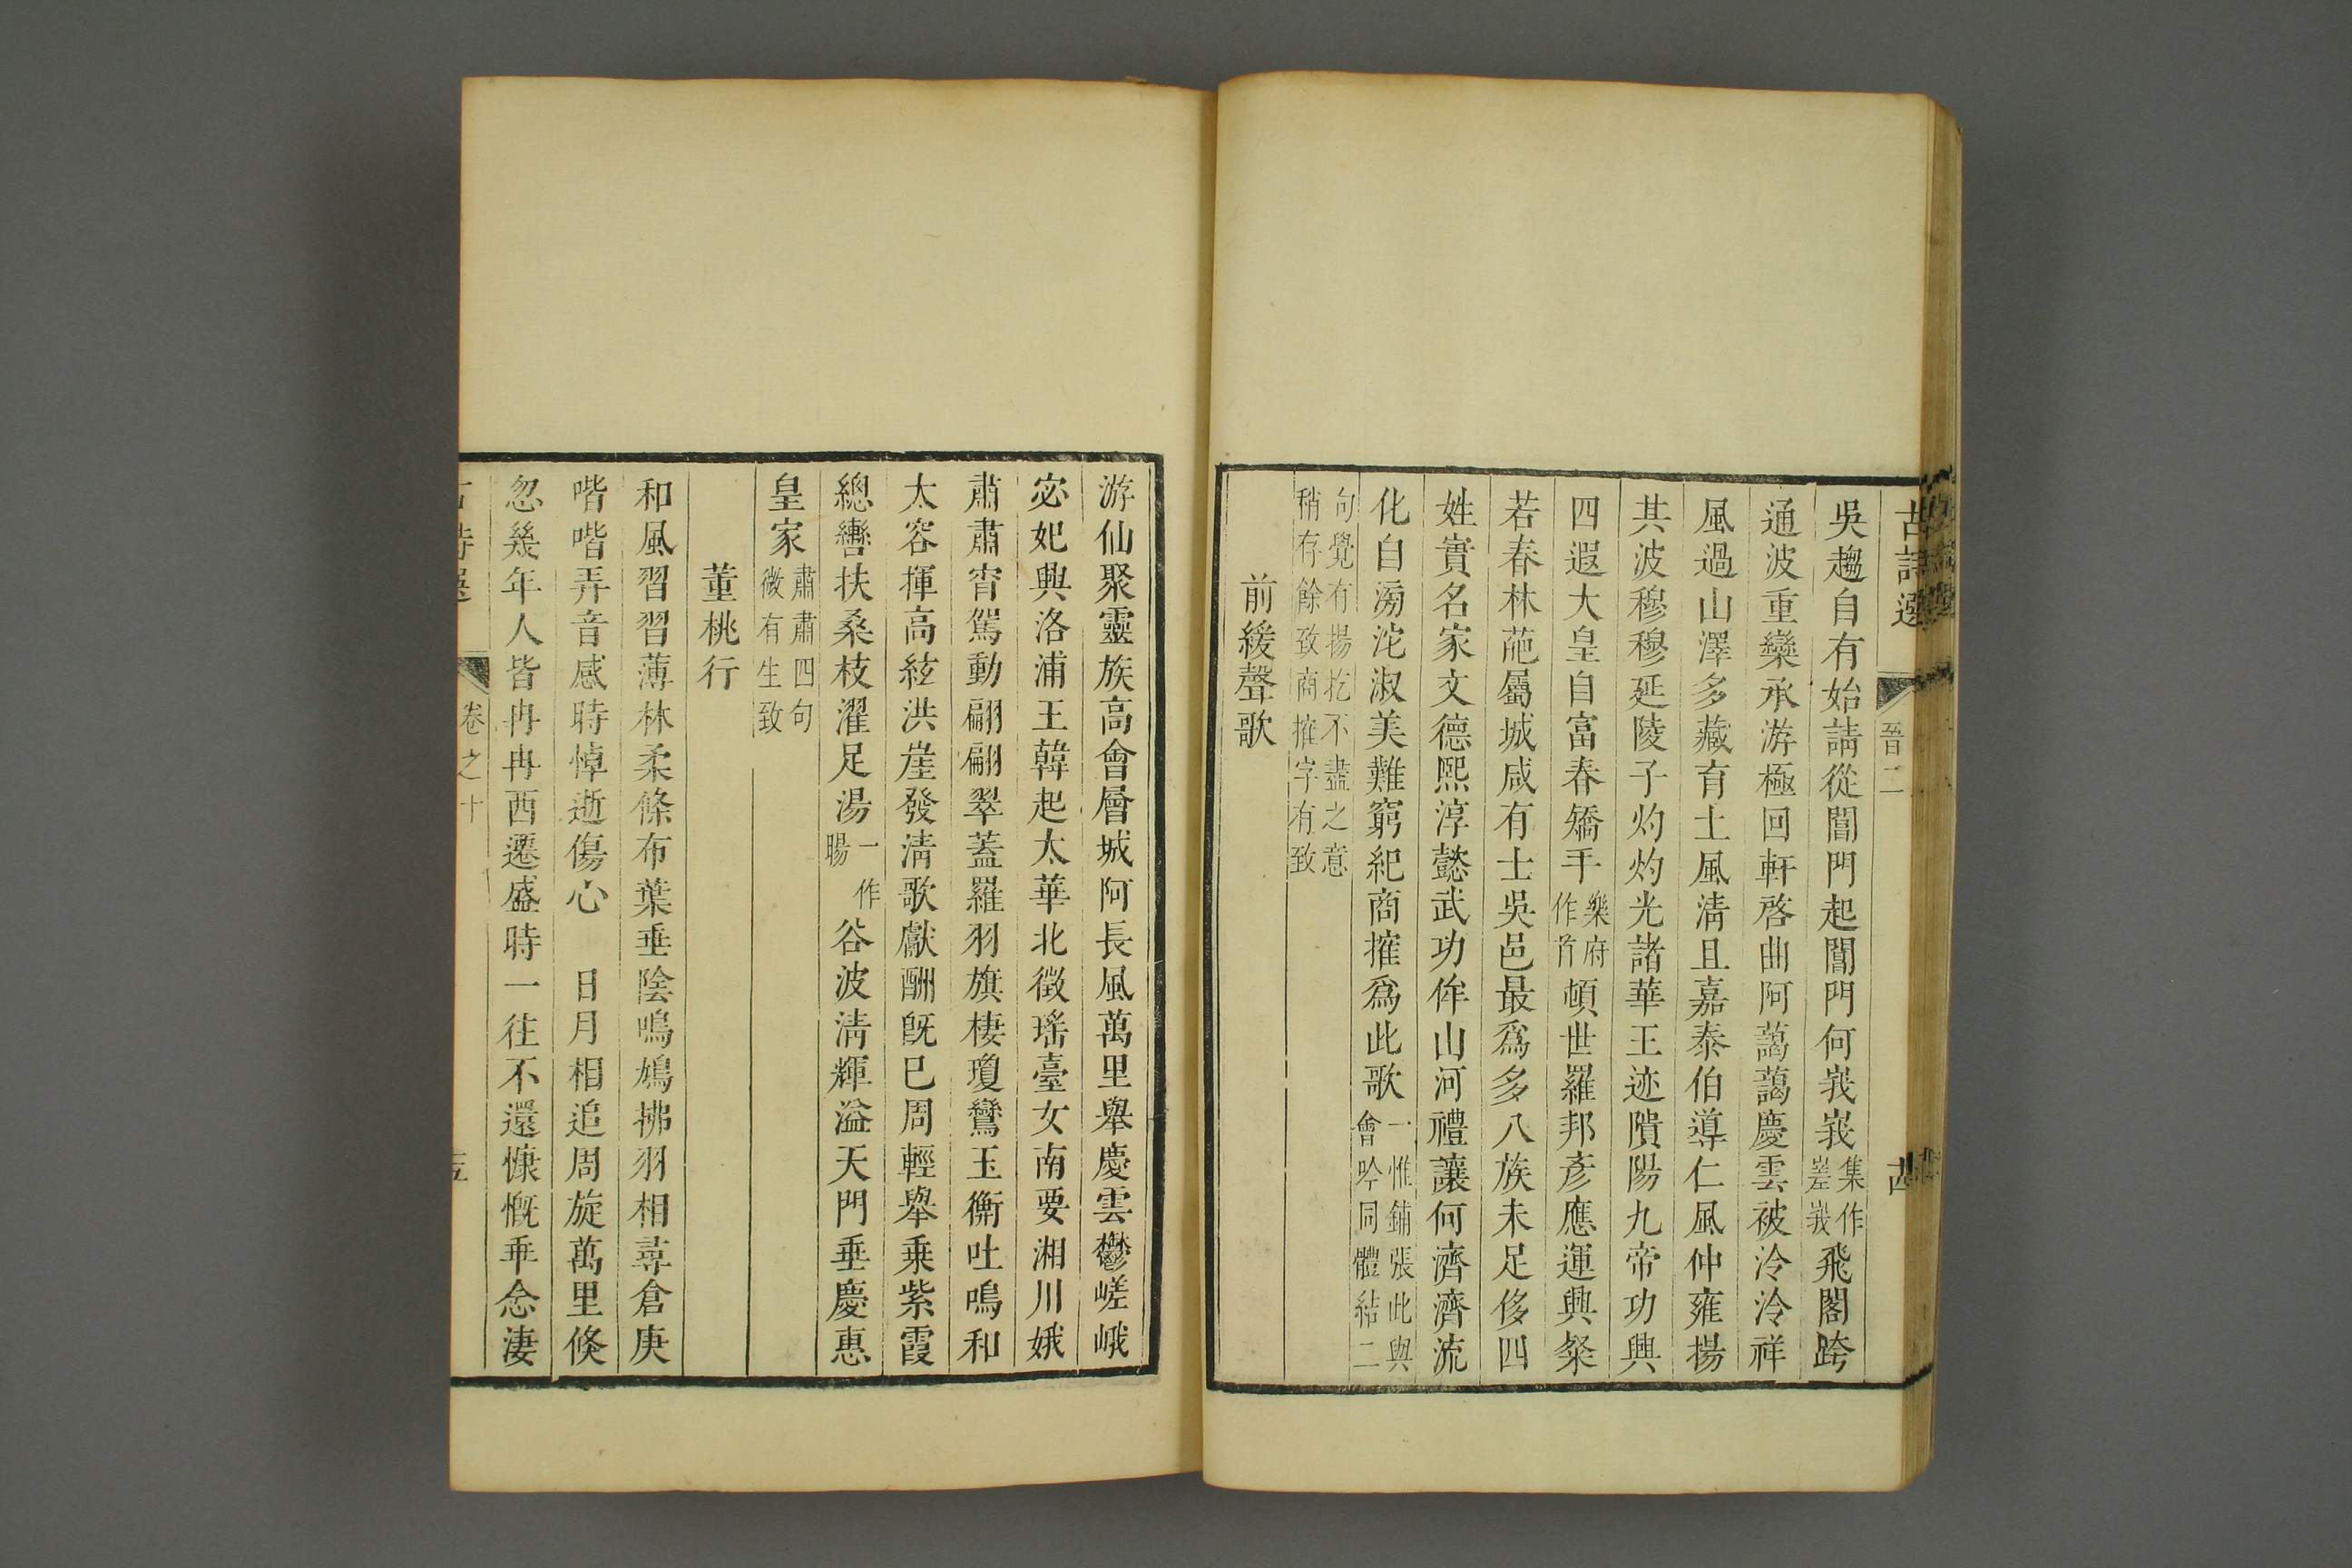 古詩選 晉二 古
吳趨自有始請從閶門起閶門何峩峩集作嵳峩飛閣跨
通波重欒承游極回軒啓曲阿藹藹慶雲被泠泠祥
風過山澤多藏育土風清且嘉泰伯導仁風仲雍揚
其波穆穆延陵子灼灼光諸華王迹隤陽九帝功興
四遐大皇自富春矯手樂府作首頓世羅邦彥應運興粲
若春林葩屬城咸有士吳邑最爲多八族未足侈四
姓實名家文德熙淳懿武功侔山河禮讓何濟濟流
化自滂沱淑美難窮紀商搉爲此歌一惟鋪張此與會吟同體結二
句覺有揚扢不盡之意稍存餘致商搉字有致
前緩聲歌
游仙聚靈族高會層城阿長風萬里舉慶雲鬱嵯峨
宓妃興洛浦王韓起太華北徵瑤臺女南要湘川娥
肅肅宵駕動翩翩翠蓋羅羽旗棲瓊鸞玉衡吐鳴和
太容揮高絃洪崖發清歌獻酬旣已周輕舉乗紫霞
總轡扶桑枝濯足湯一作暘谷波清輝溢天門垂慶惠
皇家肅肅四句微有生致
董桃行
和風習習薄林柔條布葉垂陰鳴鳩拂羽相尋倉庚
喈喈弄音感時悼逝傷心 日月相追周旋萬里倐
忽幾年人皆冉冉西遷盛時一往不還慷慨乖念淒
卷之十